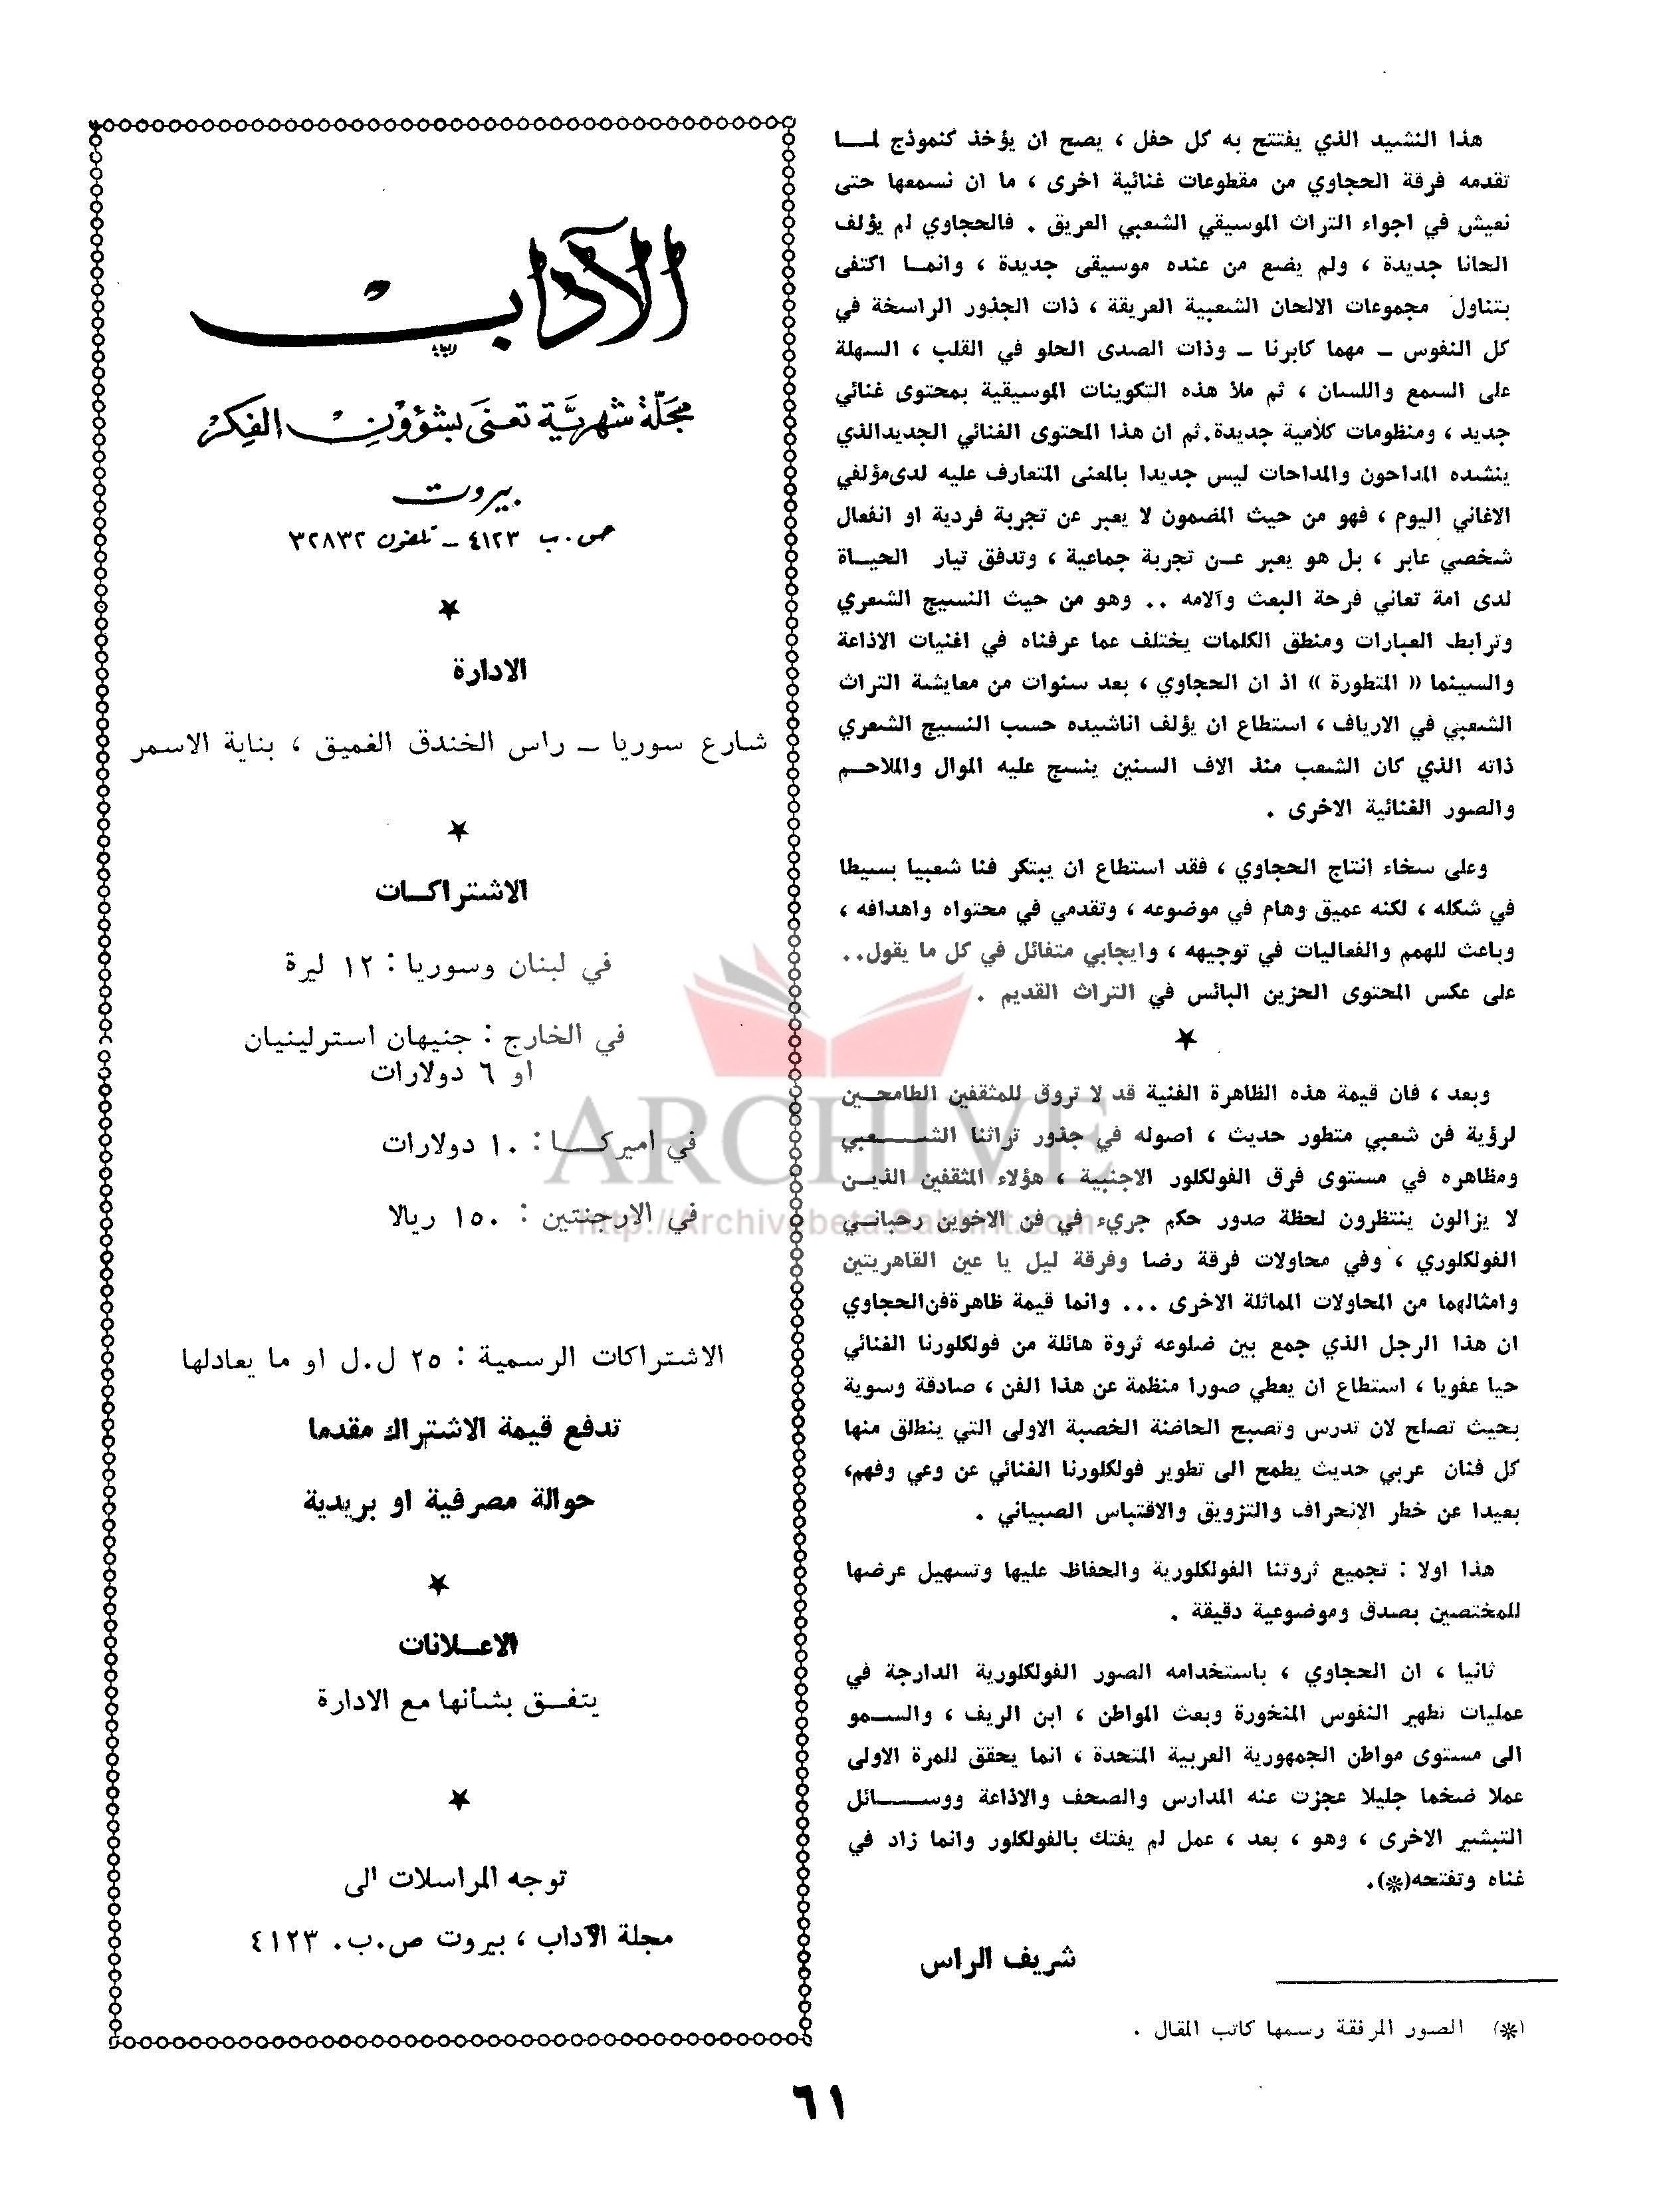 هذا النشيد الذي يفتتح به كل حفل ، يصح ان يؤخذ كنموذج لمـــا
تقدمه فرقة الحجاوي من مقطوعات غنائية اخرى ، ما ان نسمعها حتى
نعيش في اجواء التراث الموسيقي الشعبي العريق . فالحجاوي لم يؤلف
الحانا جديدة ، ولم يضع من عنده موسيقى جديدة ، وانمـا اكتفى
بتناول مجموعات الالحان الشعبية العريقة ، ذات الجذور الراسخة في
كل النفوس – مهما كابرنا – وذات الصدى الحلو في القلب ، السهلة
على السمع واللسان ، ثم ملأ هذه التكوينات الموسيقية بمحتوى غنائي
جديد ، ومنظومات كلامية جديدة. ثم ان هذا المحتوى الغنائي الجديدالذي
ينشده المداحون والمداحات ليس جديدا بالمعنى المتعارف عليه لدىمؤلفي
الاغاني اليوم ، فهو من حيث المضمون لا يعبر عن تجربة فردية او انفعال
شخصي عابر ، بل هو يعبر عـن تجربة جماعية ، وتدفق تيار الحيـاة
لدى امة تعاني فرحة البعث وآلامه .. وهو من حيث النسيج الشعري
وترابط العبارات ومنطق الكلمات يختلف عما عرفناه في اغنيات الاذاعة
والسينما (( المتطورة )) اذ ان الحجاوي ، بعد سنوات من معايشة التراث
الشعبي في الارياف ، استطاع ان يؤلف اناشيده حسب النسيج الشعري
ذاته الذي كان الشعب منذ الاف السنين ينسج عليه الموال والملاحـم
والصور الغنائية الاخرى .
وعلى سخاء انتاج الحجاوي ، فقد استطاع ان يبتكر فنا شعبيا بسيطا
في شكله ، لكنه عميق وهام في موضوعه ، وتقدمي في محتواه واهدافه ،
وباعث للهمم والفعاليات في توجيهه ، وايجابي متفائل في كل ما يقول..
على عكس المحتوى الحزين البائس في التراث القديم .
★
وبعد ، فان قيمة هذه الظاهرة الفنية قد لا تروق للمثقفين الطامحـين
لرؤية فن شعبي متطور حديث ، اصوله في جذور تراثنا الشـــعبي
ومظاهره في مستوى فرق الفولكلور الاجنبية ، هؤلاء المثقفين الذيـن
لا يزالون ينتظرون لحظة صدور حكم جريء في فن الاخوين رحبانـي
الفولكلوري ، وفي محاولات فرقة رضا وفرقة ليل يا عين القاهريتين
وامثالهما من المحاولات المماثلة الاخرى ... وانما قيمة ظاهرةفنالحجاوي
ان هذا الرجل الذي جمع بين ضلوعه ثروة هائلة من فولكلورنا الغنائي
حيا عفويا ، استطاع ان يعطي صورا منظمة عن هذا الفن ، صادقة وسوية
بحيث تصلح لان تدرس وتصبح الحاضنة الخصبة الاولى التي ينطلق منها
كل فنان عربي حديث يطمح الى تطوير فولكلورنا الغنائي عن وعي وفهم،
بعيدا عن خطر الانحراف والتزويق والاقتباس الصبياني .
هذا اولا : تجميع ثروتنا الفولكلورية والحفاظ عليها وتسهيل عرضها
للمختصين بصدق وموضوعية دقيقة .
ثانيا ، ان الحجاوي ، باستخدامه الصور الفولكلورية الدارجة في
عمليات تطهير النفوس المنخورة وبعث المواطن ، ابن الريف ، والسـمو
الى مستوى مواطن الجمهورية العربية المتحدة ، انما يحقق للمرة الاولى
عملا ضخما جليلا عجزت عنه المدارس والصحف والاذاعة ووســـائل
التبشير الاخرى ، وهو ، بعد ، عمل لم يفتك بالفولكلور وانما زاد في
غناه وتفتحه(*).
شريف الراس
(*) الصور المرفقة رسمها كاتب المقال .
الآداب
مجلة شهرية تعنى بشؤون الفكر
بيروت
ص.ب ٤١٢٣ – تلفون ٣٢٨٣٢
★
الادارة
شارع سوريا – راس الخندق الغميق ، بناية الاسمر
★
الاشتراكـات
في لبنان وسوريا : ١٢ ليرة
في الخارج : جنيهان استرلينيان
او ٦ دولارات
في اميركـــا : ١٠ دولارات
في الارجنتين : ١٥٠ ريالا
الاشتراكات الرسمية : ٢٥ ل.ل او ما يعادلها
تدفع قيمة الاشتراك مقدما
حوالة مصرفية او بريدية
★
الاعـلانات
يتفـق بشأنها مع الادارة
★
توجه المراسلات الى
مجلة الآداب ، بيروت ص.ب. ٤١٢٣
٦١
ARCHIVE
http://Archivebeta.Sakhrit.com